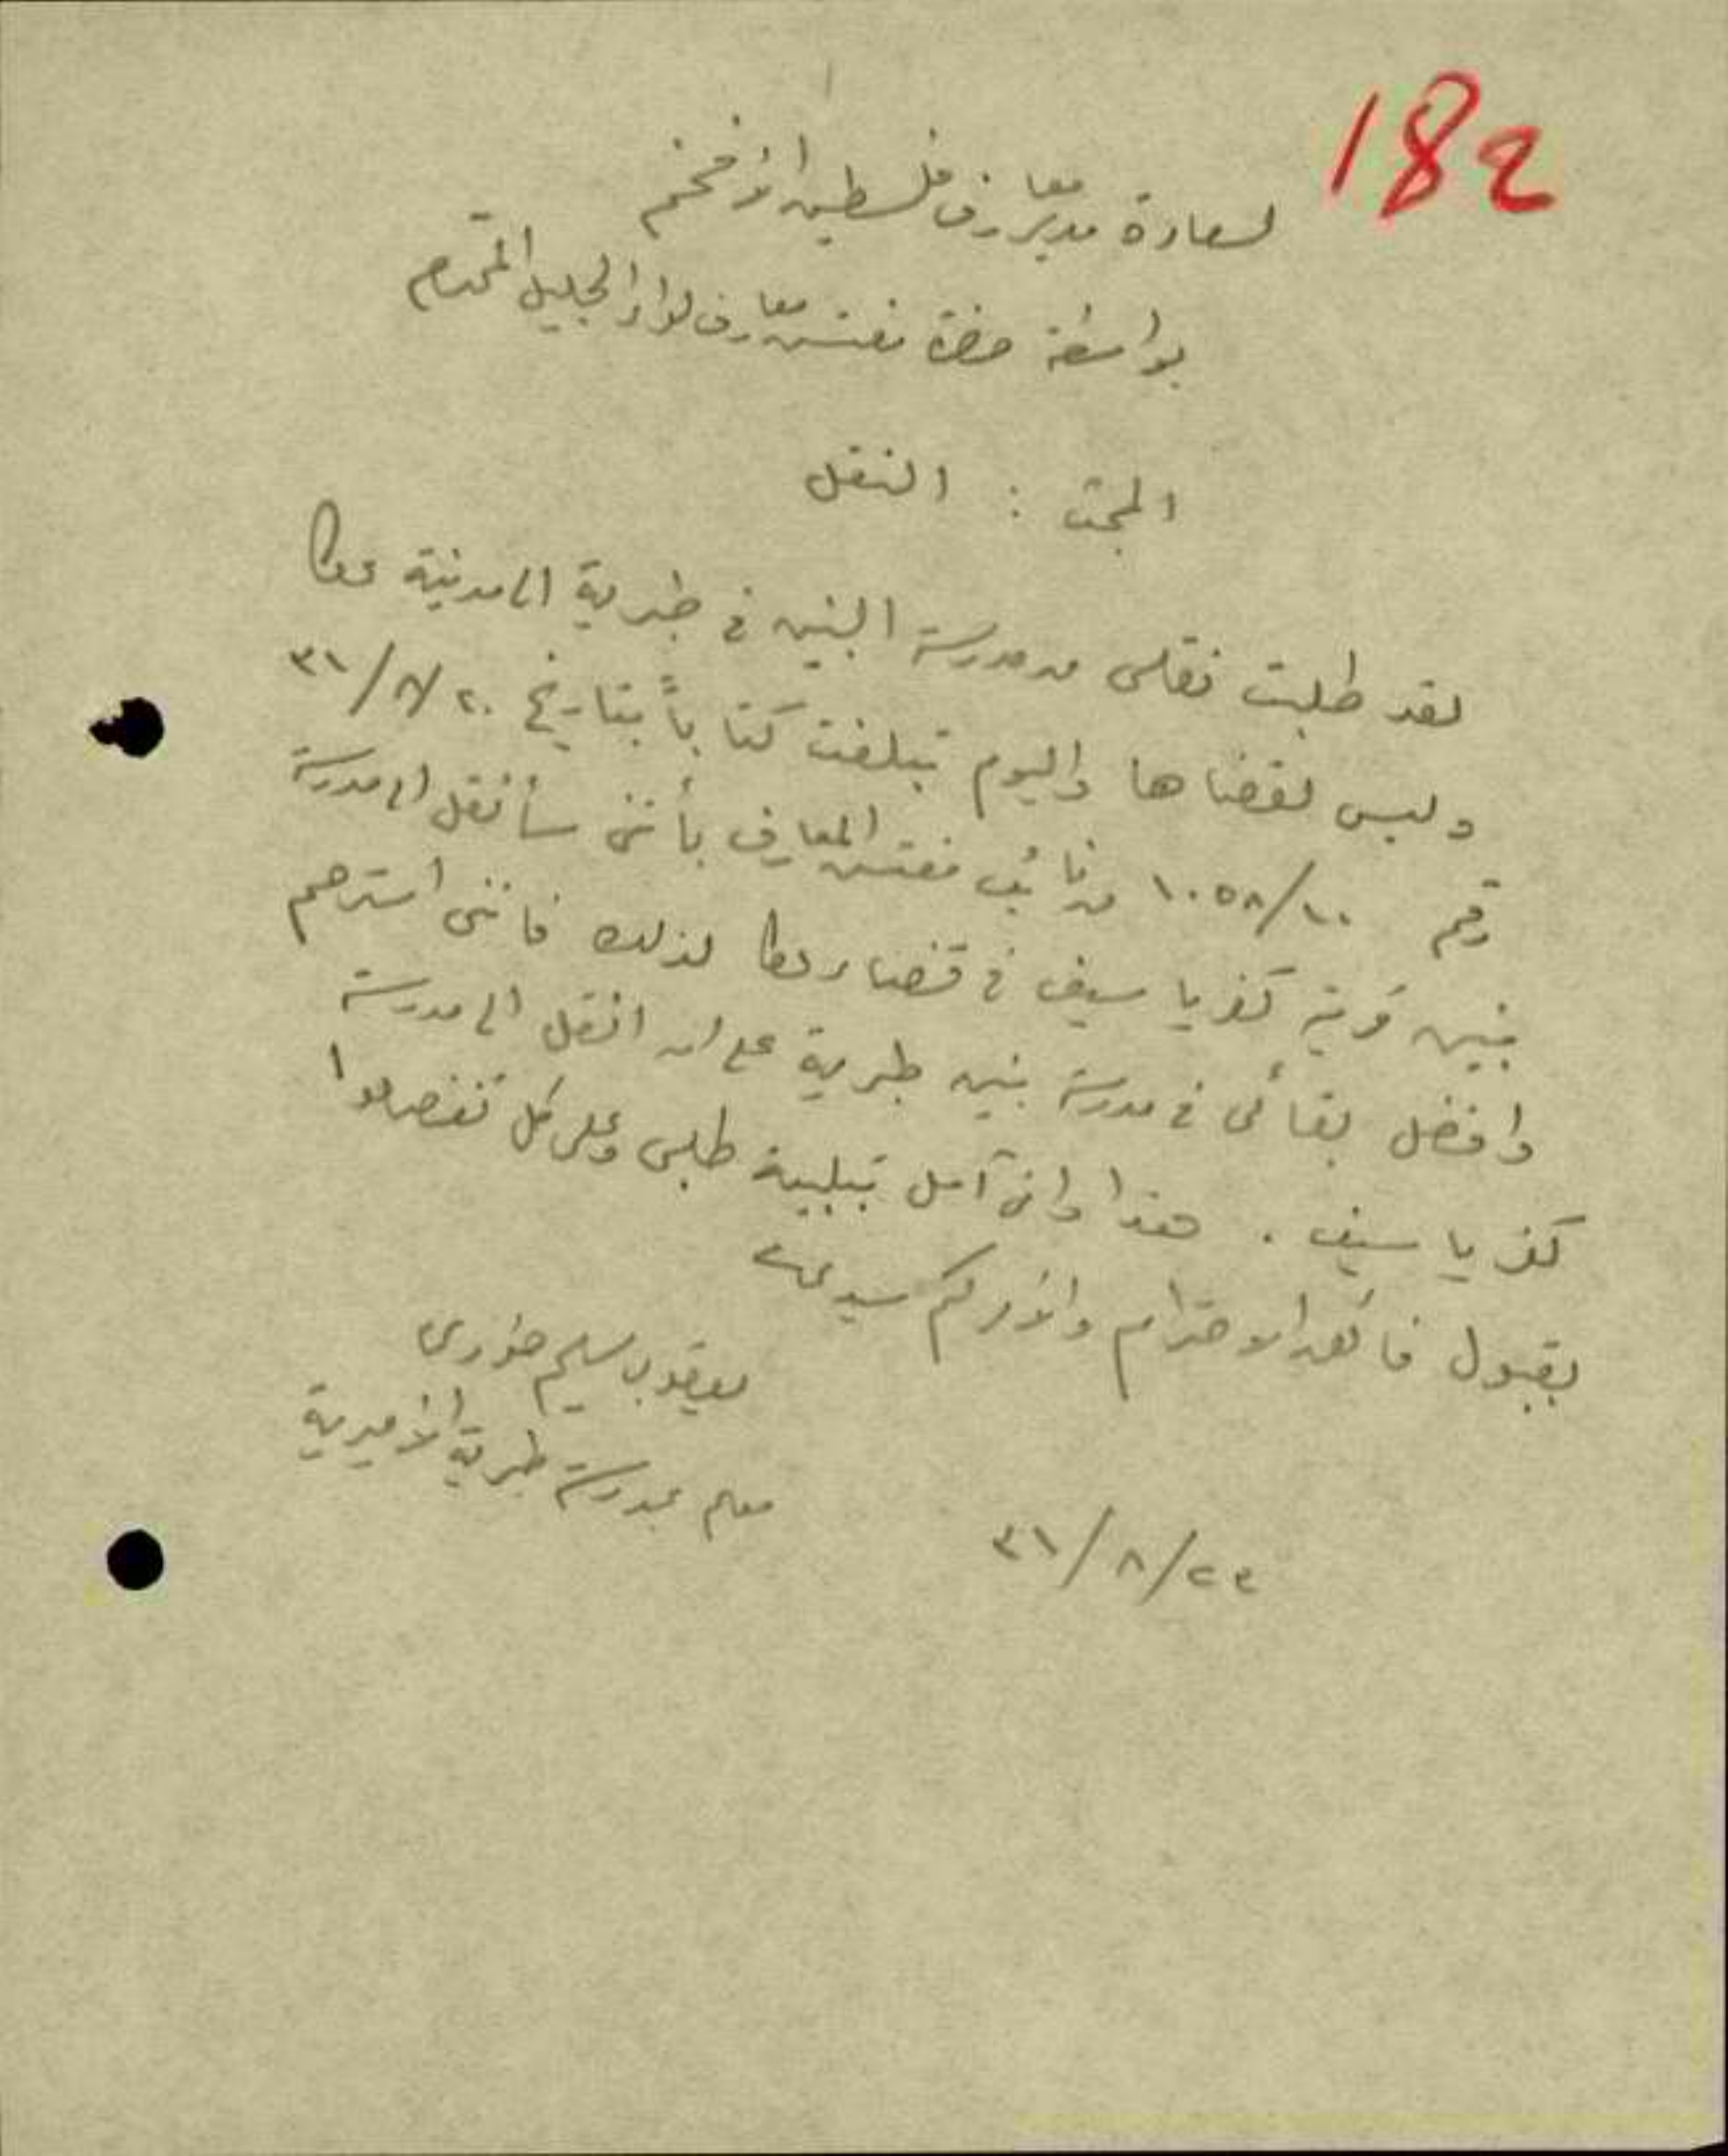 182
لسعادة مدير معارف فلسطين الأفخم
بواسطة حضرة مفتش معارف لواء الجليل المحترم
المبحث : النقل
لقد طلبت نقلي من مدرسة البنين في طبرية الى مدينة عكا
وليس لقضاها واليوم تبلغت كتاباً بتاريخ ٢٠/٨/٣١
رقم ١٠٥٨/١٠ من نائب مفتش المعارف بأنني سأنقل الى مدرسة
بنين قرية كفر ياسيف في قضاء عكا لذلك فانني استرحم
وافضل بقائي في مدرسة بنين طبرية على ان انقل الى مدرسة
كفر ياسيف . هذا واني آمل تلبية طلبي وعلى كل تفضلوا
بقبول فائق الاحترام والأمر لكم سيدي
يعقوب سليم خوري
معلم بمدرسة طبرية الأميرية
٢٣/٨/٣١